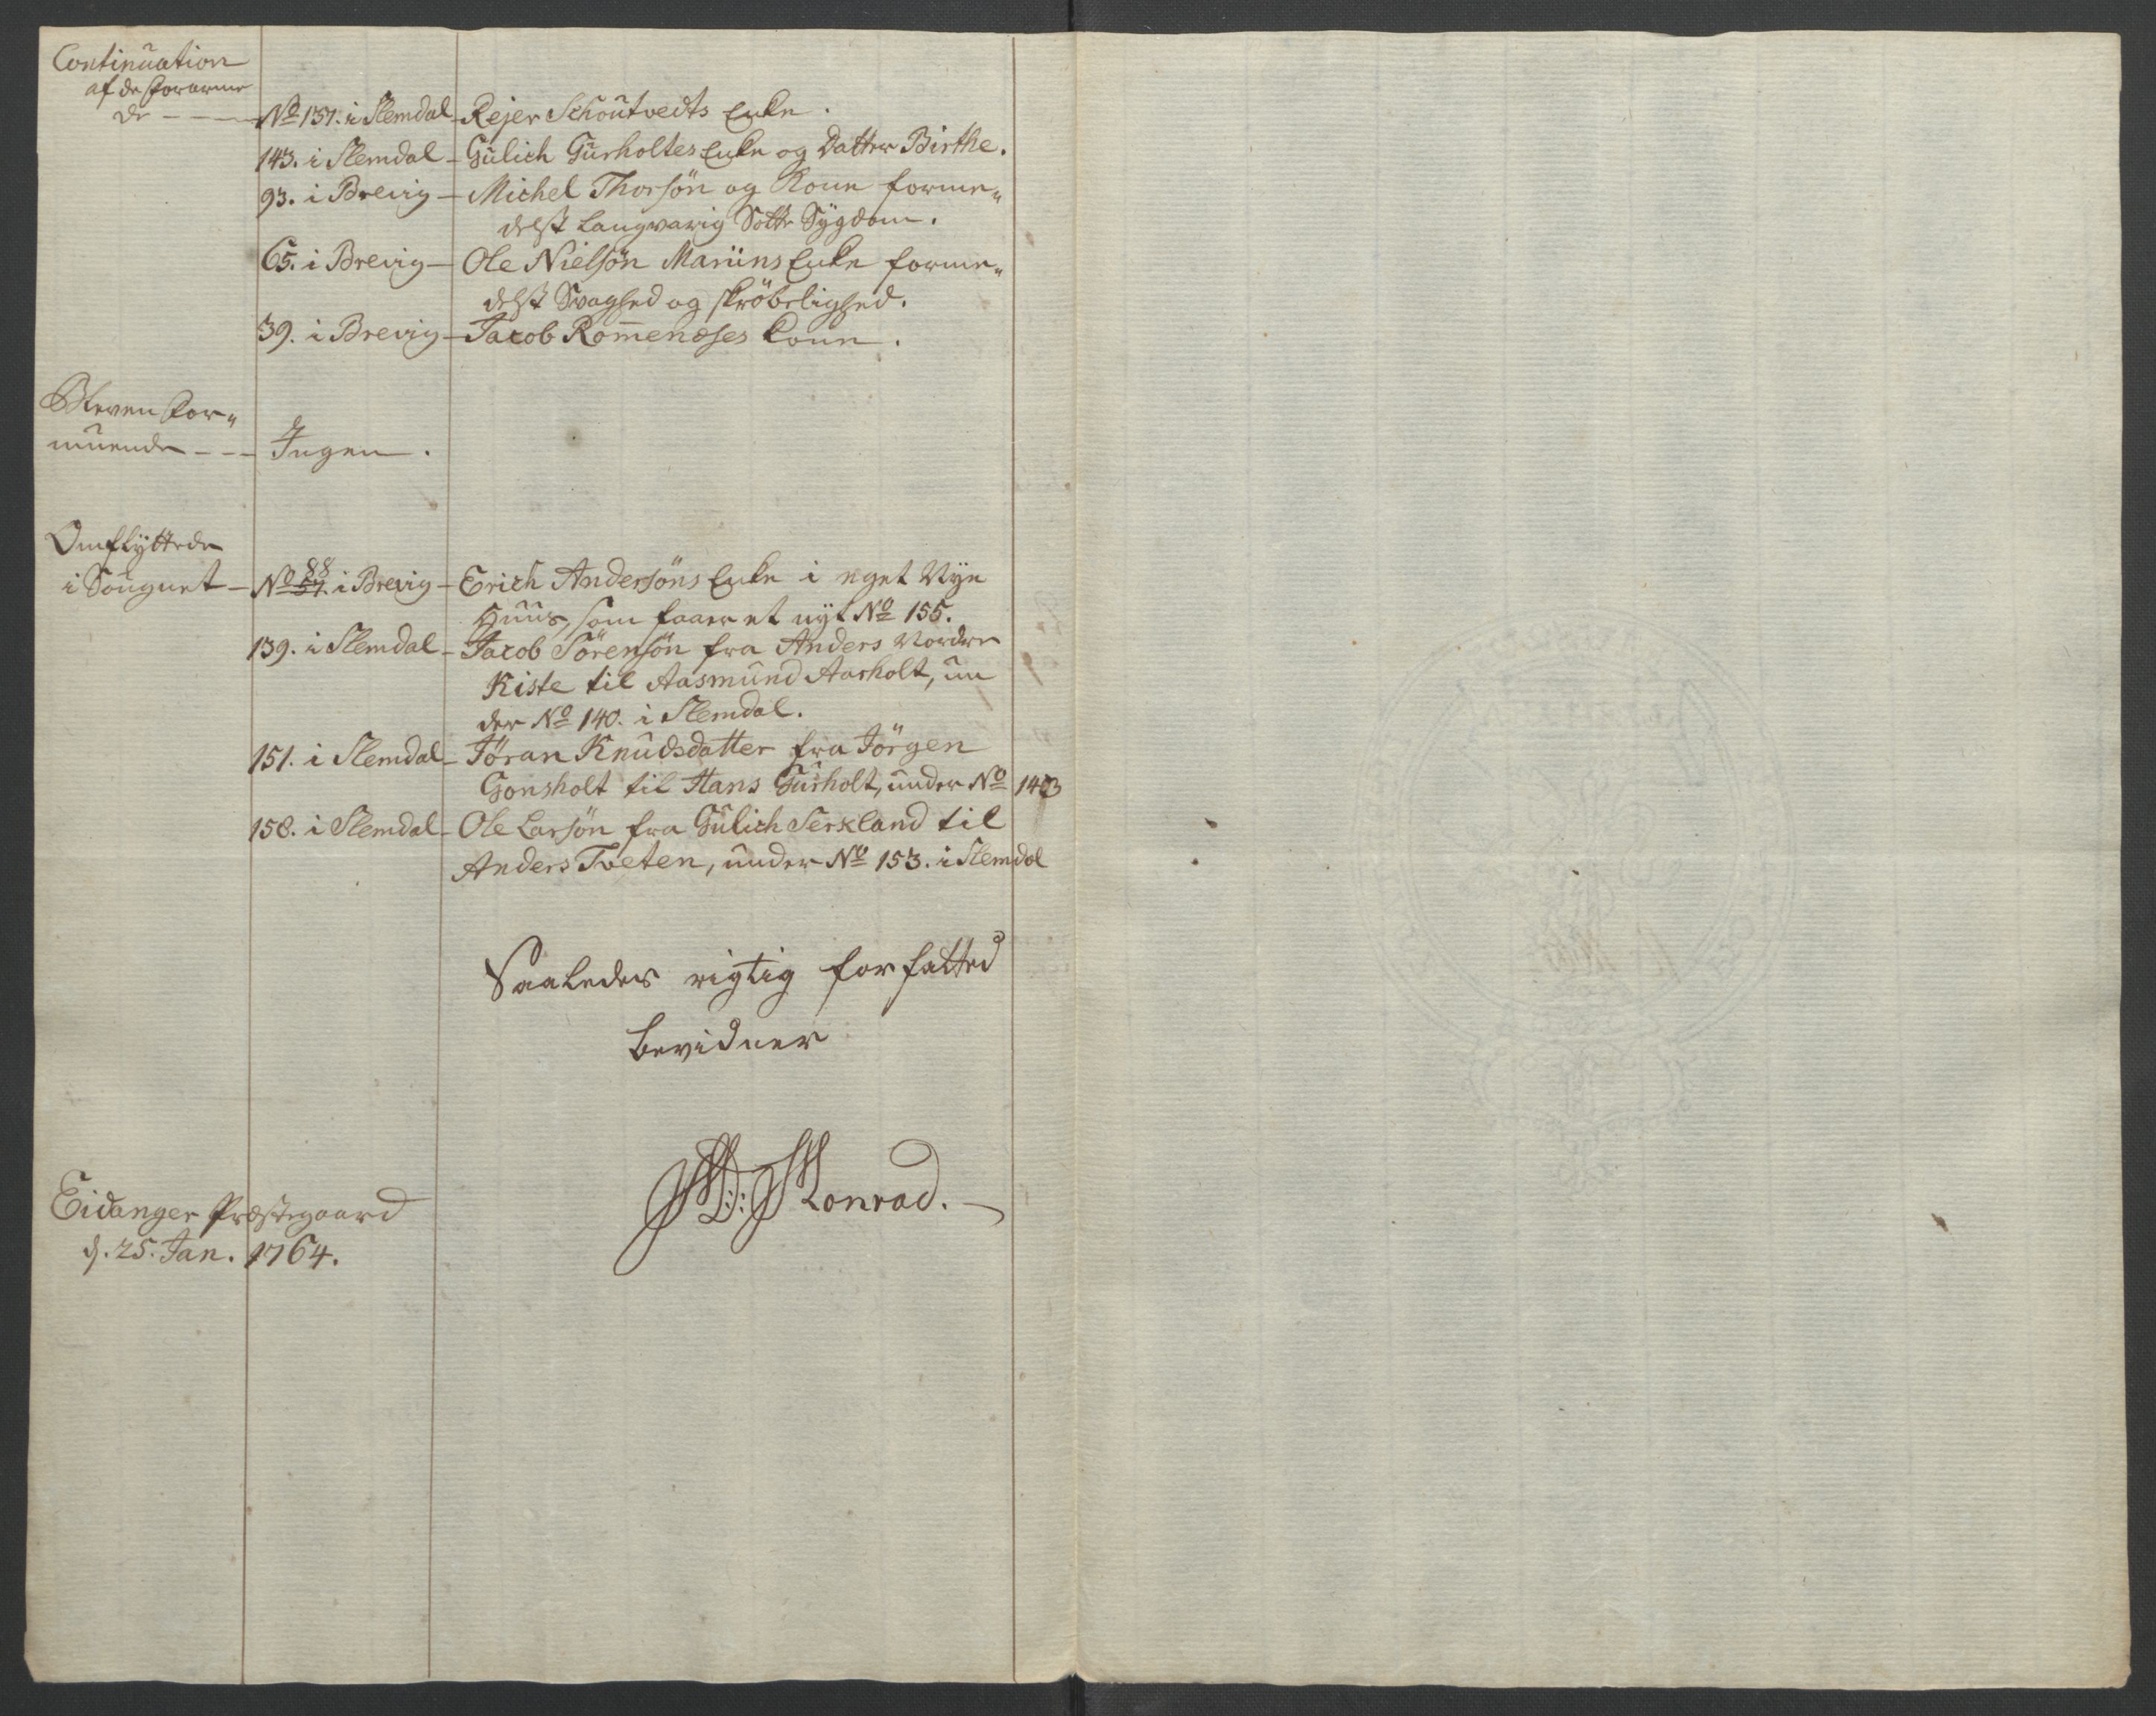 Continuation
af de Forarme
de - - - No 137. i Slemdal - Rejer Schoutvedts Enke.
143. i Slemdal - Gulich Gurholtes Enke og Datter Birthe.
93. i Brevig - Michel Thorsön og Kone forme„
delst Langvarig Sott Sÿgdom.
65. i Brevig - Ole Nielsön Maruns Enke forme„
delst Svaghed og skröbelighed.
39. i Brevig - Jacob Rom̅enæses Kone.
Bleven For„
muende - - - Ingen.
Omflÿttede
i Sougnet - No 88 i Brevig - Erich Andersöns Enke i eget Nÿe
Huus, som faaer et nÿt No 155.
139. i Slemdal - Jacob Sörensön fra Anders Nordre
Kiste til Aasmund Aarholt, un
der No 140. i Slemdal.
151. i Slemdal - Jöran Knudsdatter fra Jörgen
Gonsholt til Hans Gurholt, under No 143
158. i Slemdal - Ole Larsön fra Gulich Serkland til
Anders Tveten, under No 153. i Slemdal
Saaledes rigtig forfatted
bevidner
Monrad.
Eidanger Præstegaard
d. 25. Jan. 1764.